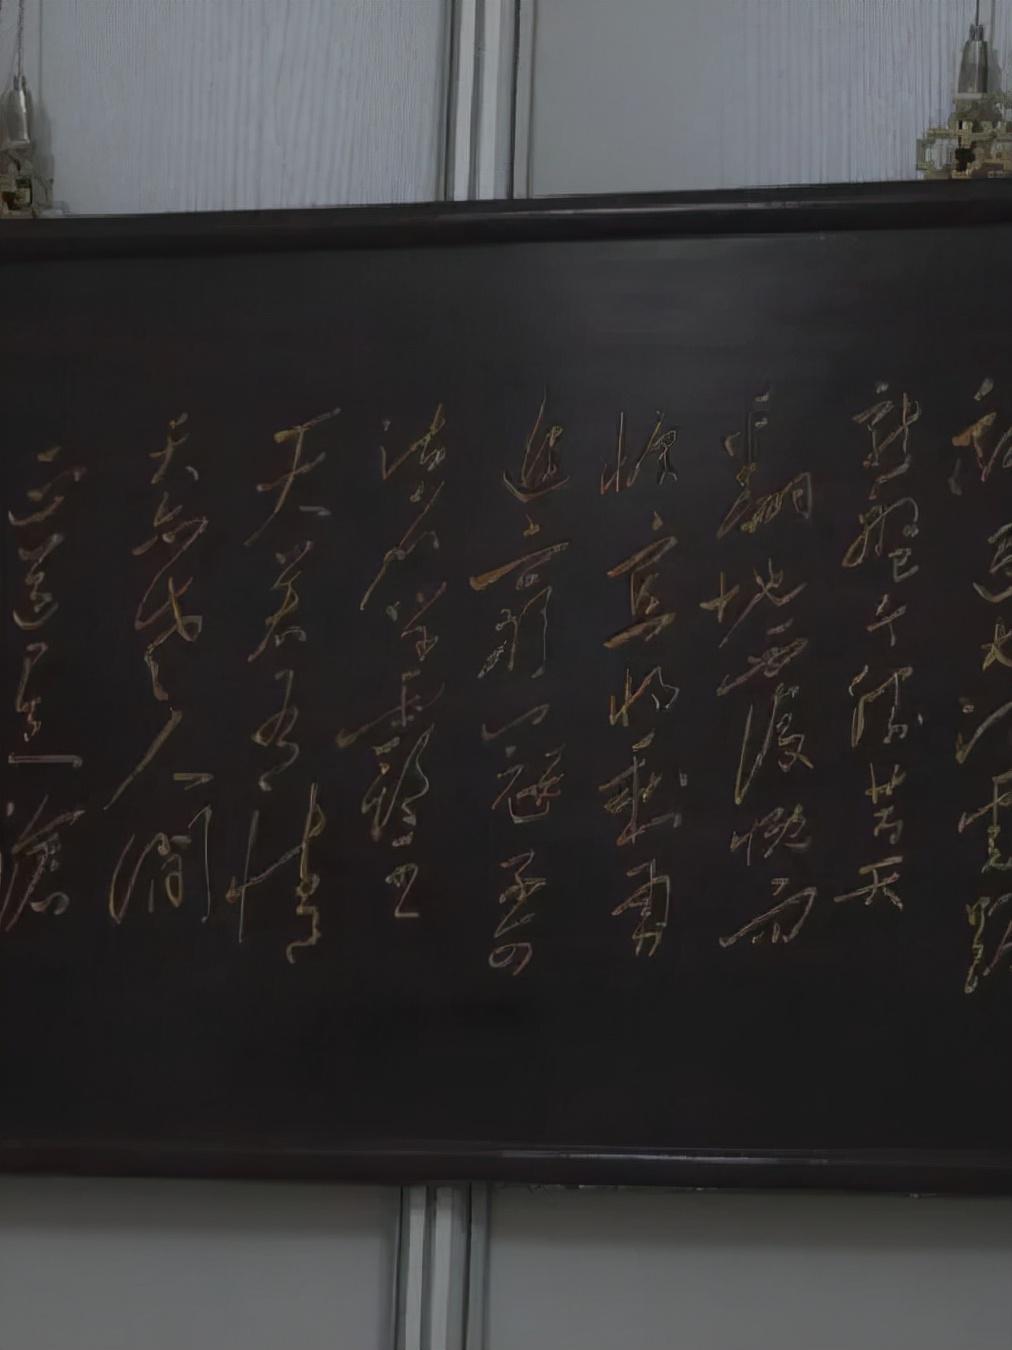 師過大江虎踞
龍盤今勝昔天
翻地覆慨而
慷宜将剩勇
追窮寇不可
沽名学霸王
天若有情
天亦老人间
正道是滄